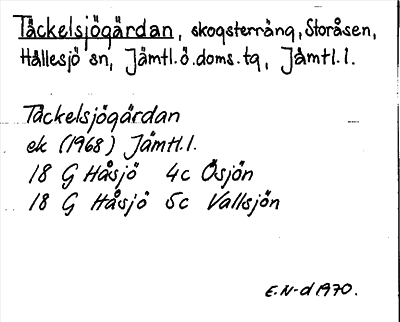 Täckelsjögärdan, skogsterräng, Storåsen,
Hällesjö sn, Jämtl.ö.doms.tg, Jämtl.l.
Täckelsjögärdan
ek (1968) Jämtl.l.
18 G Håsjö 4c Ösjön
18 G Håsjö 5c Vallsjön
E.N-d 1970.